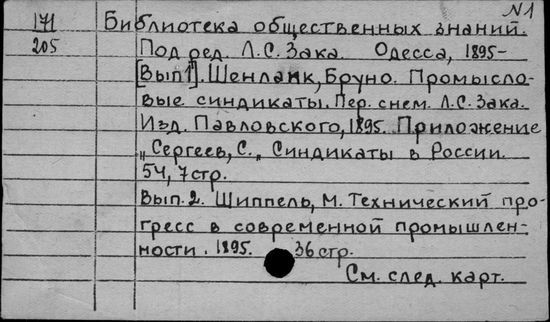 N1
171
205
Библиотека общественных знаний.
Под ред. Л.С. Зака. Одесса, 1895-
[Вып 1]. Шенланк, Бруно. Промысло-
вые синдикаты. Пер. с нем. Л.С. Зака.
Изд. Павловского, 1895. Приложение
„Сергеев, С.„ Синдикаты в России.
54, 7 стр.
Вып. 2. Шиппель, М. Технический про-
гресс в современной промышлен-
ности. 1895. 36 стр.
См. след. карт.